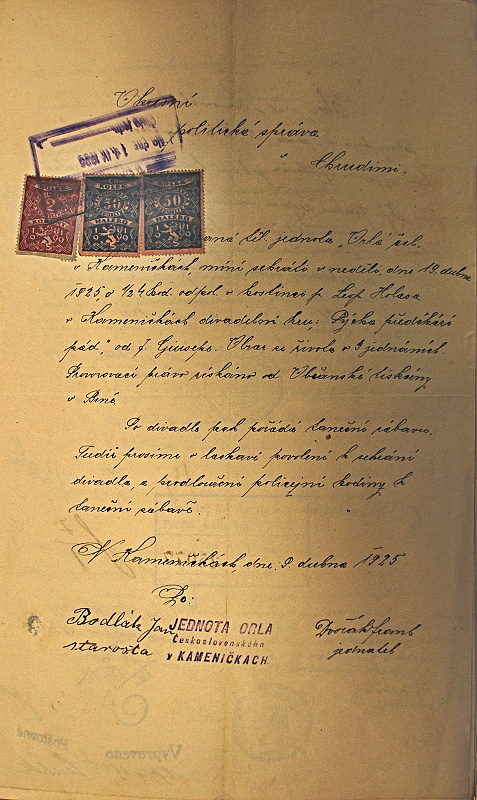 Okresní
politická správa
v
Chrudimi.
došlo dne 14. IV. 1925
KOLEK
2
KOLEK
50
HALÉŘŮ
KOLEK
50
HALÉŘŮ
těl. jednota „Orla čsl.
v Kameničkách, míní sehráti v neděli, dne 19. dubna
1925 o ½4 hod. odpol. v hostinci p. Leop. Holasa
v Kameničkách divadelní hru: Pýcha předchází
pád," od J. Obraz ze života o 3 jednáních.
Provozovací právo získáno od Občanské tiskárny
v Brně.
Po divadle pak pořádá taneční zábavu.
Tudíž prosíme o laskavé povolení k sehrání
divadla, a prodloužení policejní hodiny k
taneční zábavě.
V Kameničkách, dne 9. dubna 1925
Za:
Bodlák Jan
starosta
JEDNOTA ORLA
Československého
v KAMENIČKÁCH
Dvořák Frant
jednatel